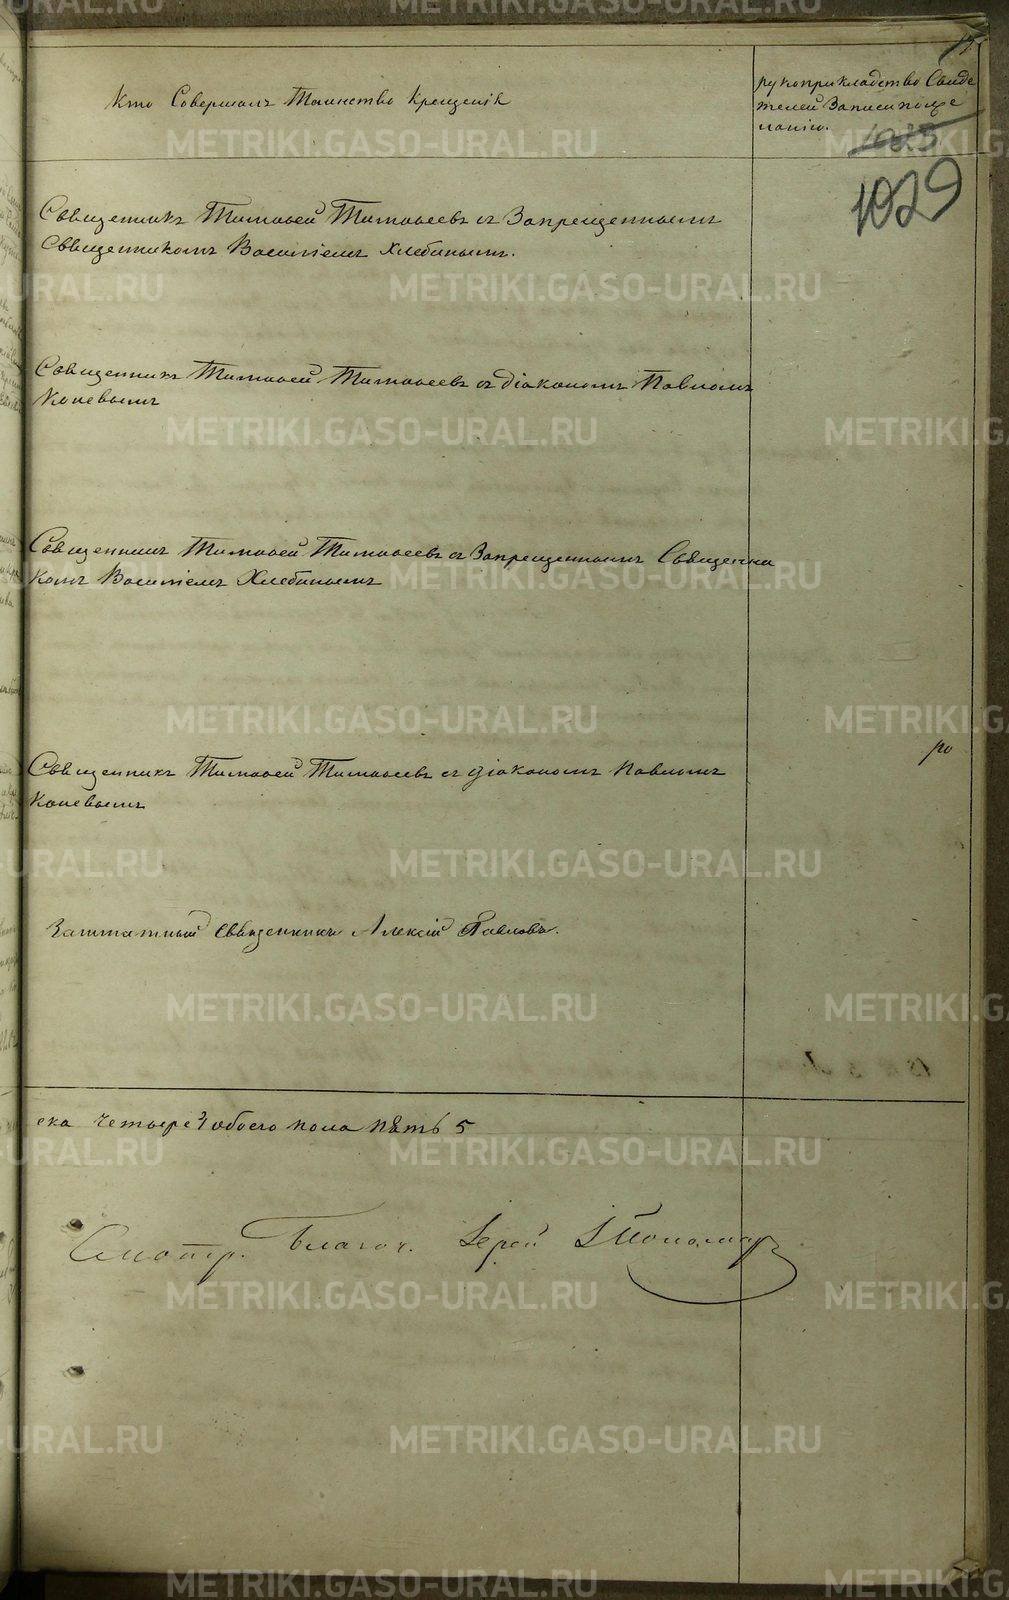 Кто Совершалъ Таинство Крещенія
рукоприкладство Свиде
телей Записи по же
ланію.
1025
1029
Священникъ Тимофей Тимофеевъ съ Запрещеннымъ
Священникомъ Василіемъ Хлебинымъ.
Священникъ Тимофей Тимофеевъ съ діакономъ Павломъ
Коневымъ
Священникъ Тимофей Тимофеевъ съ Запрещеннымъ Священни
комъ Василіемъ Хлебинымъ
Священникъ Тимофей Тимофеевъ съ діакономъ Павломъ
Коневымъ
Заштатный Священникъ Алексій Павловъ.
ска четыре обоего пола пять 5
Смотр. Благоч. Іерей І Пономар
METRIKI.GASO-URAL.RU